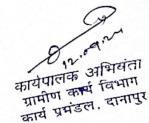 12.09.24
कार्यपालक अभियंता
ग्रामीण कार्य विभाग
कार्य प्रमंडल, दानापुर